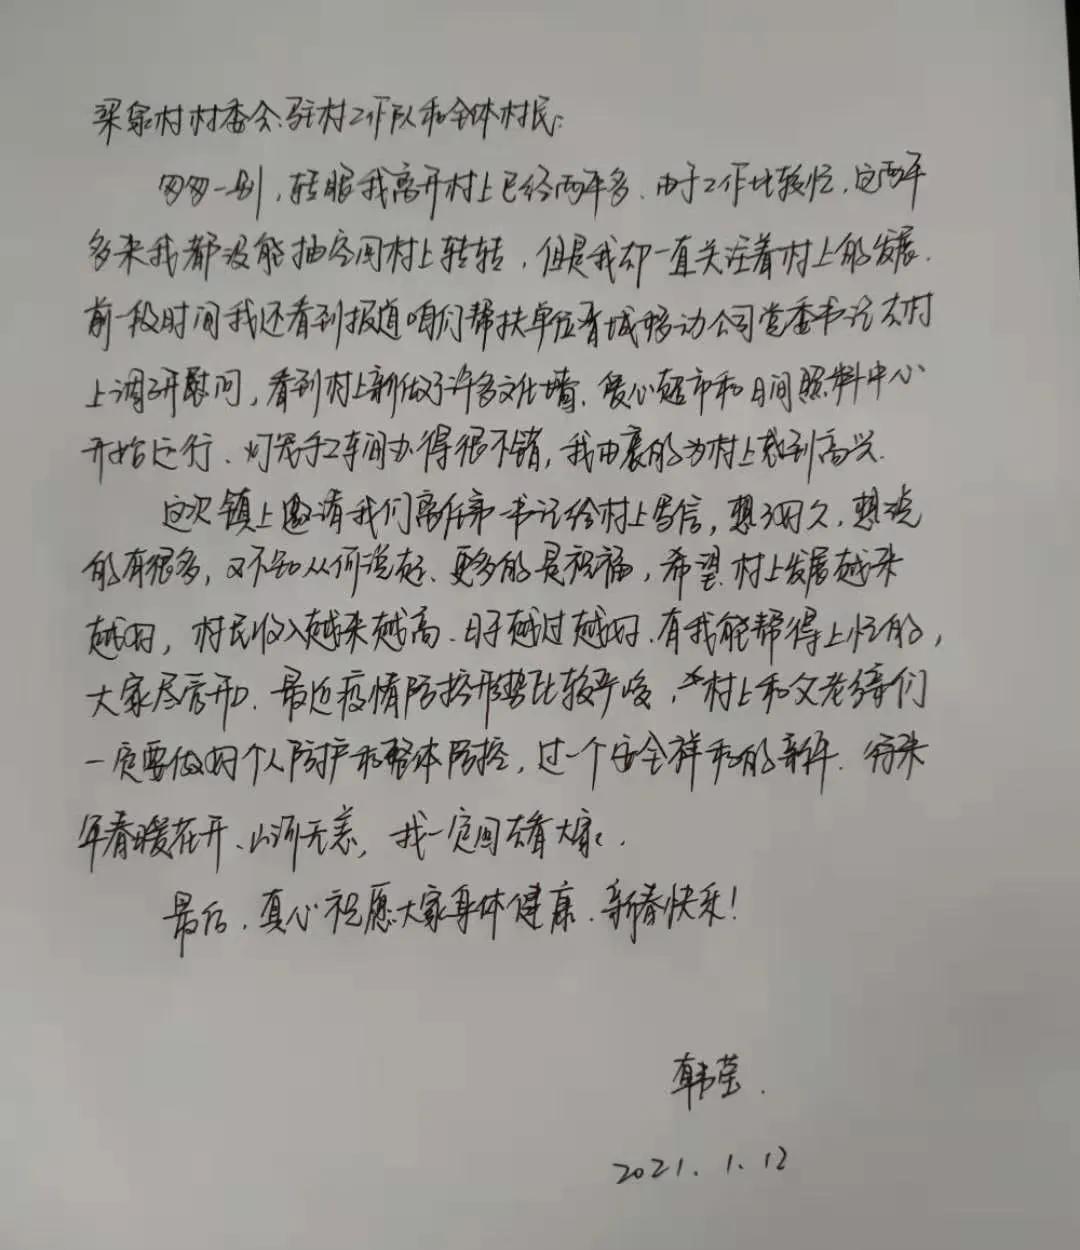 梁泉村村委会、驻村工作队和全体村民：
匆匆一别，转眼我离开村上已经两年多。由于工作比较忙，这两年
多来我都没能抽空回村上转转，但是我却一直关注着村上的发展。
前一段时间我还看到报道咱们帮扶单位晋城移动公司党委书记去村
上调研慰问，看到村上新做了许多文化墙、爱心超市和日间照料中心
开始运行、灯笼手工车间办得很不错，我由衷的为村上感到高兴。
这次镇上邀请我们离任第一书记给村上写信，想了好久，想说
的有很多，又不知从何说起、更多的是祝福，希望村上发展越来
越好，村民收入越来越高、日子越过越好、有我能帮得上忙的，
大家尽管开口。最近疫情防控形势比较严峻，村上和父老乡亲们
一定要做好个人防护和整体防控，过一个安全祥和的新年。待来
年春暖花开、山河无恙，我一定回去看大家。
最后，真心祝愿大家身体健康、新春快乐！
韩莹.
2021.1.12